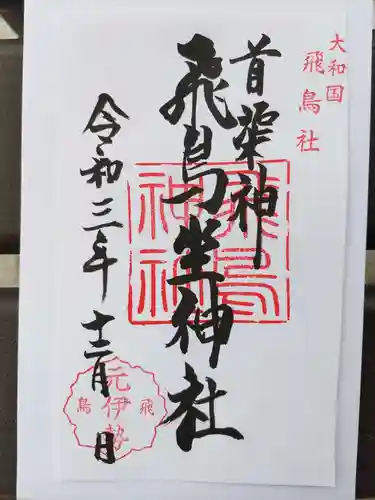 大和国
飛鳥社
首渠神
飛鳥坐神社
飛鳥
神社
令和三年十二月 日
元伊勢
飛鳥